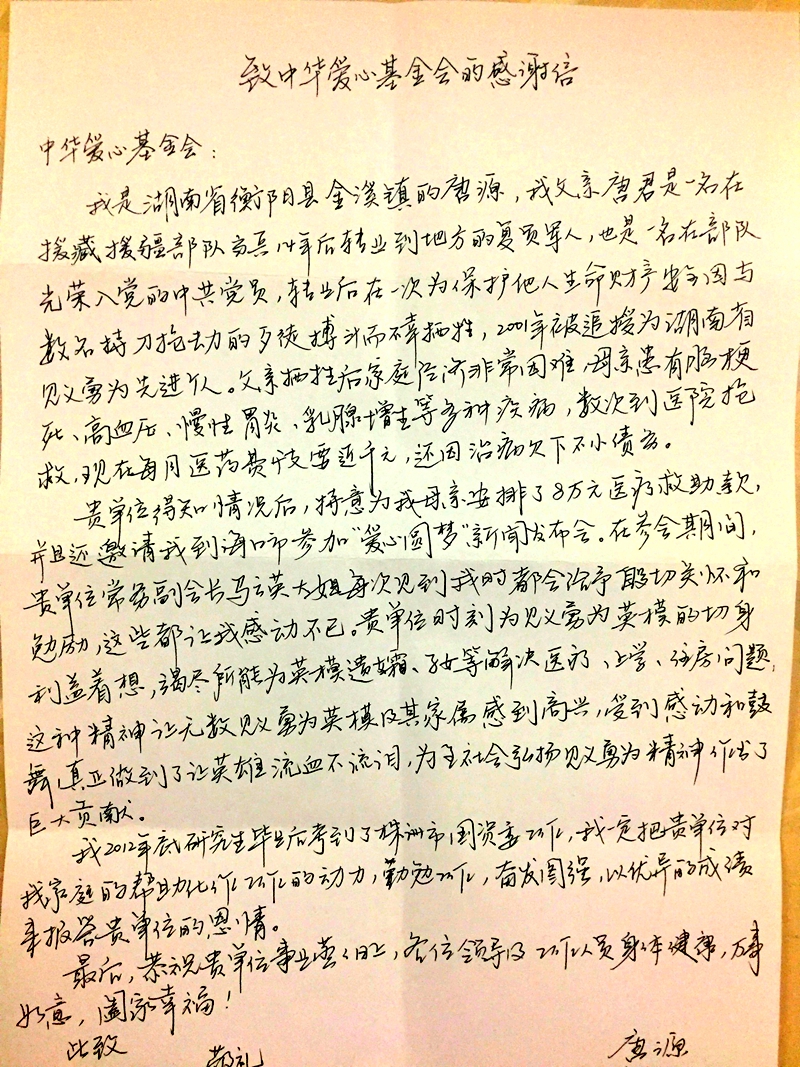 致中华爱心基金会的感谢信
中华爱心基金会：
我是湖南省衡阳县金溪镇的唐源，我父亲唐君是一名在
援藏援疆部队当兵14年后转业到地方的复员军人，也是一名在部队
光荣入党的中共党员，转业后在一次为保护他人生命财产安全因与
数名持刀抢劫的歹徒搏斗而不幸牺牲，2001年被追授为湖南省
见义勇为先进个人。父亲牺牲后家庭经济非常困难，母亲患有脑梗
死、高血压、慢性胃炎、乳腺增生等多种疾病，数次到医院抢
救，现在每月医药费开支要近千元，还因治病欠下不小债务。
贵单位得知情况后，特意为我母亲安排了8万元医疗救助款，
并且还邀请我到海口市参加“爱心圆梦”新闻发布会。在参会期间，
贵单位常务副会长马云英大姐每次见到我时都会给予殷切关怀和
勉励，这些都让我感动不已。贵单位时刻为见义勇为英模的切身
利益着想，竭尽所能为英模遗孀、子女等解决医疗、上学、住房问题，
这种精神让无数见义勇为英模及其家属感到高兴，受到感动和鼓
舞，真正做到了让英雄流血不流泪，为全社会弘扬见义勇为精神作出了
巨大贡献。
我2012年底研究生毕业后考到了株洲市国资委工作，我一定把贵单位对
我家庭的帮助化作工作的动力，勤勉工作，奋发图强，以优异的成绩
来报答贵单位的恩情。
最后，恭祝贵单位事业蒸蒸日上，各位领导及工作人员身体健康，万事
如意，阖家幸福！
此致
敬礼
唐源